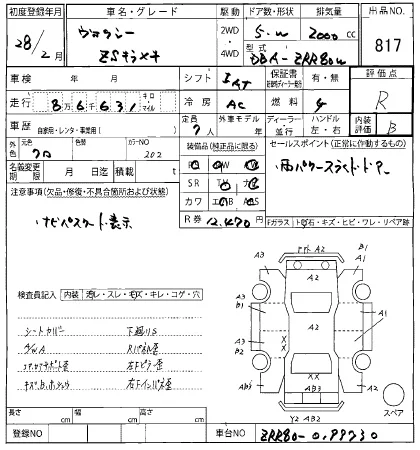 初度登録年月 車名・グレード 駆動 ドア数・形状 排気量 出品NO.
28/2月 ヴォクシー 2WD・4WD 5・W 2000cc 817
ZSキラメキ 型式 DBA-ZRR80W
車検 年 月 シフト IAT 保証書 有・無 評価点
走行 8万6千631 キロ マイル 冷房 AC 燃料 G R
車歴 自家用・レンタ・事業用( ) 定員 7人 外車モデル 年 ディーラー・並行 ハンドル 左・右 内装評価 B
外色 元色 クロ 色替 カラーNO 202 装備品(純正品に限る) セールスポイント(正常に作動するもの)
両パワースライドドアー
名義変更期限 月 日迄 積載 t SR
注意事項(欠品・修復・不具合箇所および状態) カワ
ナビパスワード表示 R券 12,470円 Fガラス トビ石・キズ・ヒビ・ワレ・リペア跡
検査員記入 内装 汚レ・スレ・モズ・キレ・コゲ・穴
シートカバー 下廻りS
A/W A Rパネル歪
コアサポート歪 右Fピラー歪
右Fインパネ歪
A2
A3 B1
A3 A1
A2
A3
B1
A1
A3
B2
X
X
XX
A3 A2
AB3
Y2 AB2
スペア
長さ cm 幅 cm 高さ cm
登録NO 車台NO ZRR80-0199730